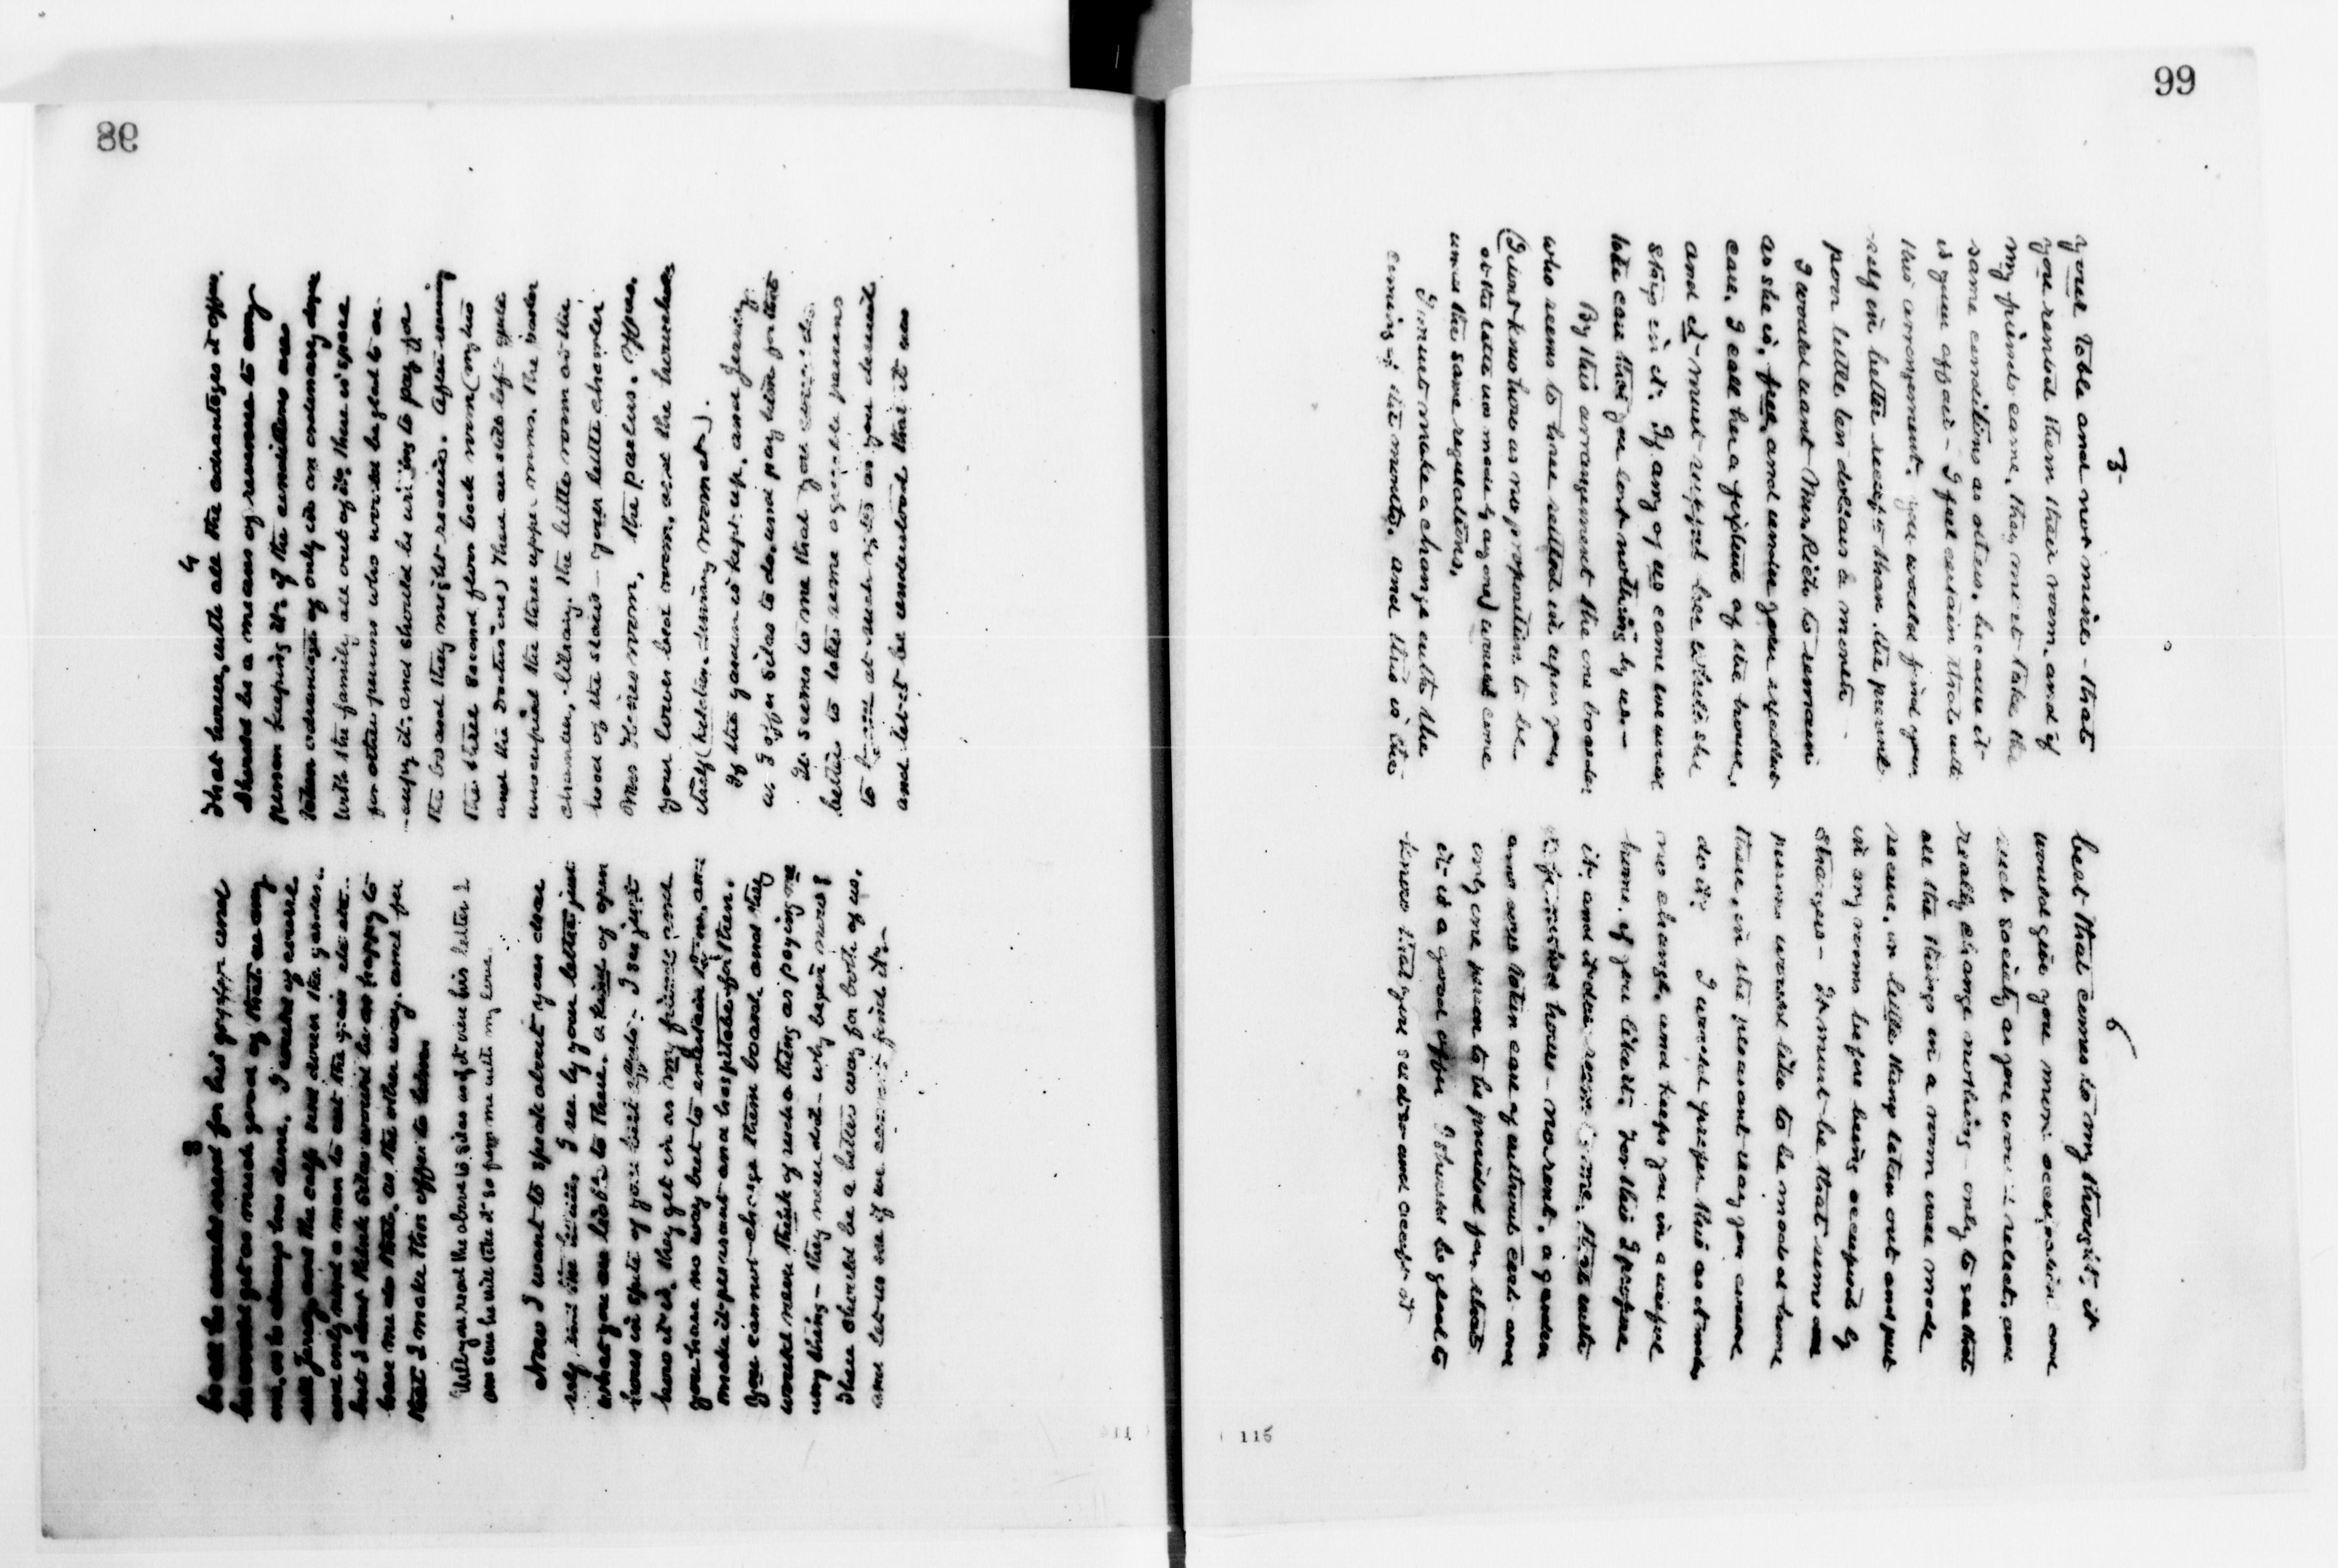 98
3
he would get as much good of that as any
one, as he always has done. I would of course
sell Jersey and the calf and down the garden
and only need a man to cut the grass etc etc.
but I dont think Silas would be as happy to
have me do that, as the other way, and for
that I make this offer to him
Will you read the above to Silas and give him his letter I
am sure he will take it so from me with my love
Now I want to speak about your dear
self and the house. I see by your letter just
what you are liable to there. a kind of open
house in spite of your best efforts. I see just
how it is, they get in as my friends and
you have no way but to entertain them, and
make it pleasant and hospitable for them.
You cannot charge them board and they
would never think of such a thing as paying me
any thing - they never did - why begin now?
There should be a better way for both of us,
and let us see if we cannot find it -
4
That house, with all the advantages it offers
should be a means of revenue to any
person keeping it, if the conditions are
taken advantage of only in an ordinary degree
With the family all out of it, there is space
for other persons who would be glad to oc-
-cupy it, and should be willing to pay for
the board they might receive. After reserving
the three second floor back rooms (my two
and the Doctor's one) There are still left quite
unoccupied the three upper rooms. The border
chamber, library. the little room at the
head of the stairs - your little chamber
Mrs Hines room, the parlors, Offices.
your lower bed room, and the household
itself (kitchen - dining room etc).
If the garden is kept up, and Jersey
as I offer Silas to do, and pay him for that
it seems to me that you could do
better to take some agreeable persons
to board at such rates as you demand
and let it be understood that it was
99
5
your table and not mine - that
you rented them their room, and if
my friends came, they must take the
same conditions as others, because it
is your affair - I feel certain that with
this arrangement. you would find your
-self in better receipts than the present
poor little ten dollars a month -
I would want Mrs Rich to remain
as she is, free, and under your excellent
care. I call her a fixture of the house,
and it must support her while she
stays in it. If any of us came we would
take care that you lost nothing by us. -
By this arrangement the one boarder
who seems to have settled in upon you,
(I dont know how as no proposition to be
at the table was made by any one) would come
under the same regulations.
I must make a change with the
coming of the month, and this is the
6
best that comes to my thought, it
would give you more occupation and
such society as you would select, and
really change nothing - only to see that
all the things in a room were made
secure, or little things taken out and put
in my rooms before being occupied by
strangers - It must be that some
persons would like to be made at home
there, in the pleasant way you could
do it. I would prefer this as it makes
no change, and keeps you in a useful
home, if you like it. For this I propose
it, and it does seem to me, that with
a furnished house - no rent, a garden
and cow taken care of without cost and
only one person to be provided for that
it is a good offer. I should be glad to
know that you see it so and accept it
116